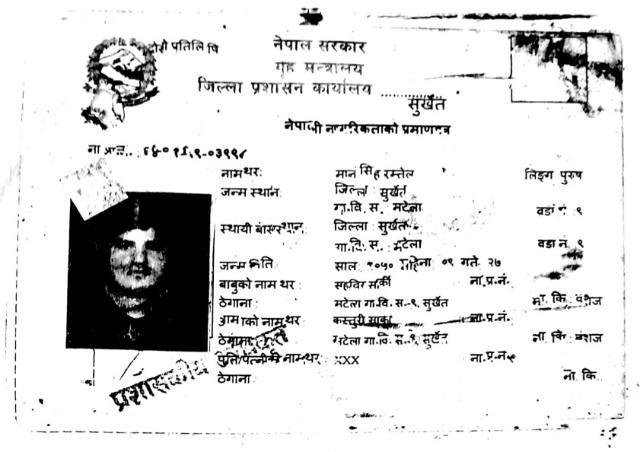 दोश्रो प्रतिलिपि
नेपाल सरकार
गृह मन्त्रालय
जिल्ला प्रशासन कार्यालय ........... सुर्खेत
नेपाली नागरिकताको प्रमाणपत्र
नामथर: मान सिंह रम्तेल लिङ्ग पुरुष
जन्म स्थान: जिल्ला सुर्खेत
गा.वि.स. मटेला वडा नं. ९
स्थायी बासस्थान: जिल्ला सुर्खेत
गा.वि.स. मटेला वडा नं. ९
जन्म मिति साल २०५० महिना ०९ गते २७
बाबुको नाम थर: ना.प्र.नं.
ठेगाना: मटेला गा.वि.स.-९, सुर्खेत ना. कि. वंशज
आमाको नाम थर: कस्तुरी ना.प्र.नं.
ठेगाना: मटेला गा.वि.स.-९, सुर्खेत ना. कि. वंशज
पति/पत्नीको नामथर: xxx ना.प्र.नं.
ठेगाना: ना. कि.
प्रशासकीय